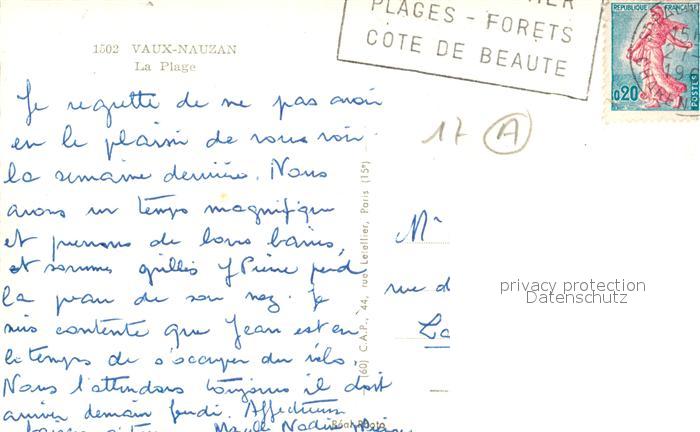 1502 VAUX-NAUZAN
La Plage
PLAGES - FORETS
COTE DE BEAUTE
REPUBLIQUE FRANÇAISE
0,20
POSTES
17 A
Je regrette de ne pas avoir
eu le plaisir de vous voir
la semaine dernière. Nous
avons un temps magnifique
et prenons de bons bains,
et sommes grillés J Pierre perd
la peau de son nez. Je
suis contente que Jean est eu
le temps de s'occuper du vélo.
Nous l'attendons toujours il doit
arriver demain jeudi. Affectueux
baisers à tous Nadine
(60) C.A.P., 44, rue Letellier, Paris (15e)
Réal-Photo
Mr
rue d
La
privacy protection
Datenschutz